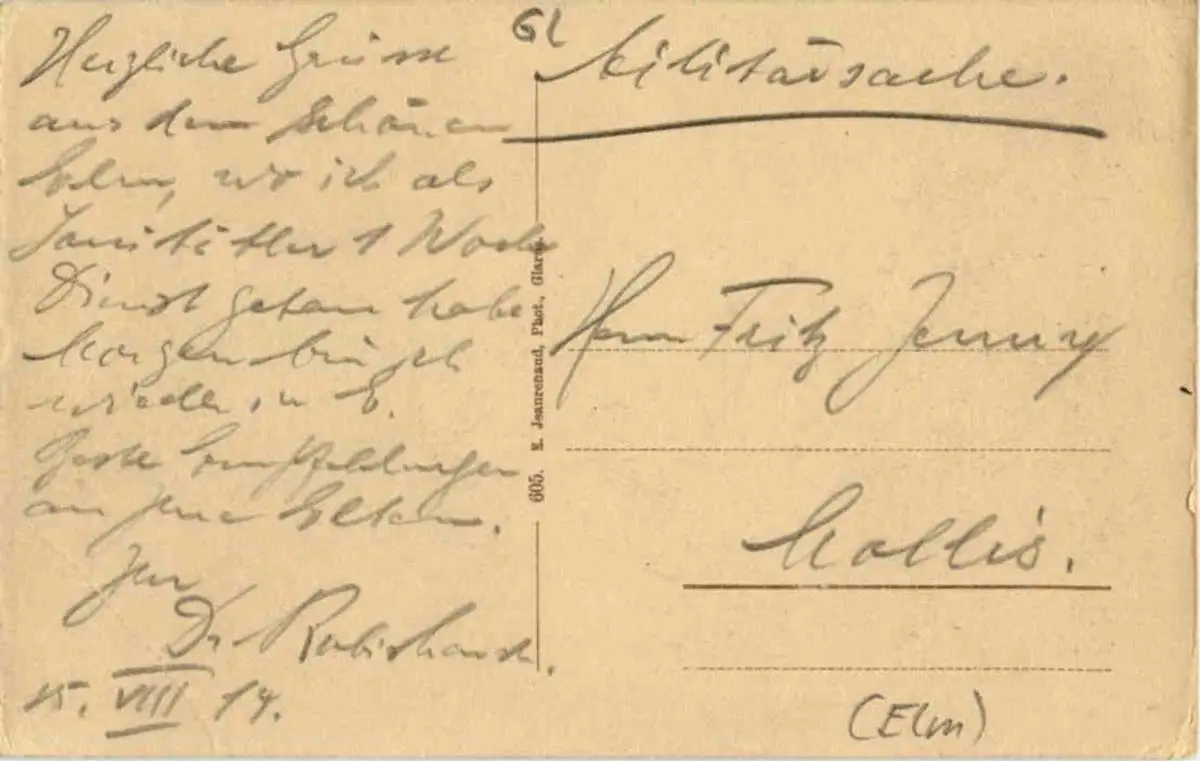 Herzliche Grüsse
aus dem schönen
Elm, wo ich als
Sanitätler 1 Woche
Dienst getan habe
Morgen bin ich
wieder in E.
Beste Empfehlungen
an Ihre Eltern.
Ihr
Dr
15. VIII 14.
605. E. Jeanrenaud, Phot., Glarus
Gl
Militärsache.
Herrn Fritz Jenny
Mollis.
(Elm)